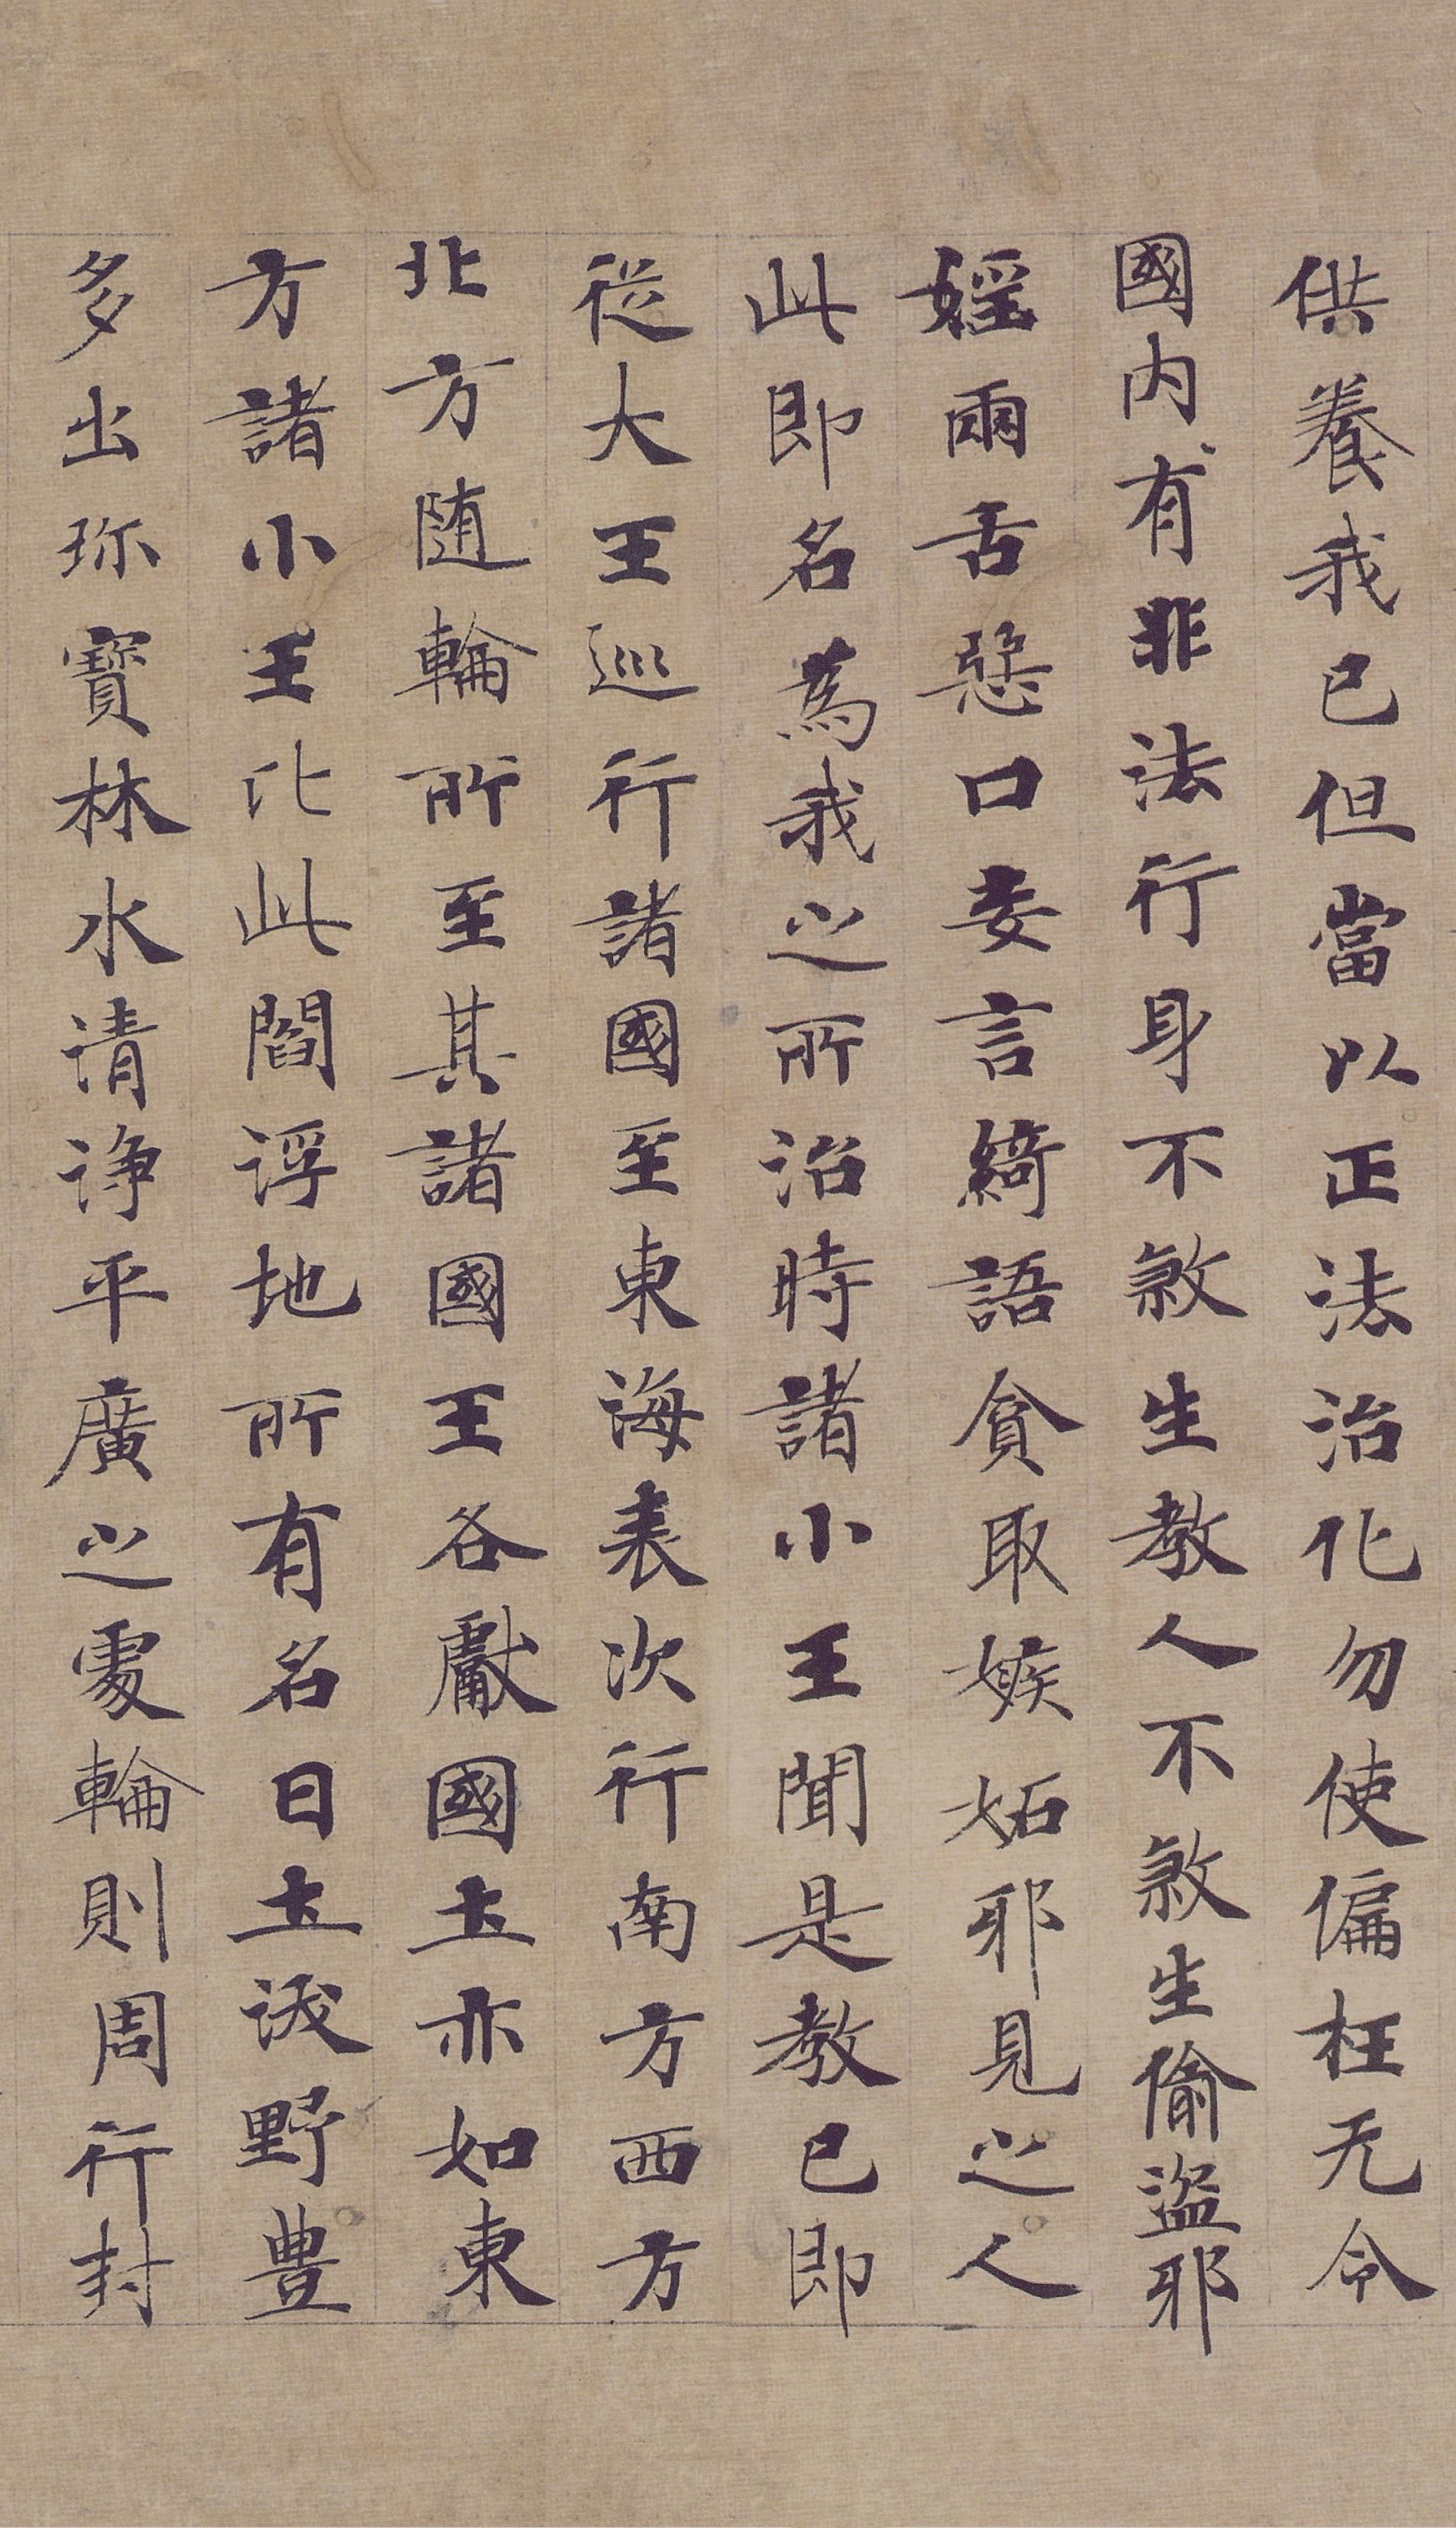 供養我已但當以正法治化勿使偏枉无令
國內有非法行身不煞生教人不煞生偷盜耶
婬兩舌惡口妄言綺語貪取嫉妬耶見之人
此即名為我之所治時諸小王聞是教已即
從大王巡行諸國至東海表次行南方西方
北方随輪所至其諸國王各獻國土亦如東
方諸小王比此閻浮地所有名曰土沃野豊
多出珎寶林水清淨平廣之處輪則周行封